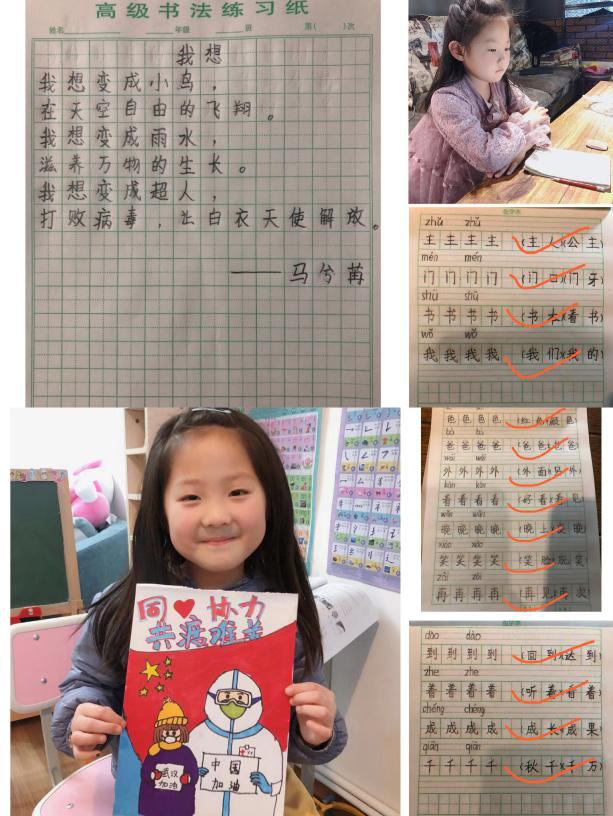 高级书法练习纸
姓名 年级 班 第( )次
我想
我想变成小鸟，
在天空自由的飞翔。
我想变成雨水，
滋养万物的生长。
我想变成超人，
打败病毒，让白衣天使解放。
——马兮苒
zhǔ zhǔ
主 主 主 主 (主 人)(公 主)
mén mén
门 门 门 门 (门 口)(门 牙)
shū shū
书 书 书 书 (书 本)(看 书)
wǒ wǒ
我 我 我 我 (我 们)(我 的)
同♥协力
共渡难关
武汉
加油
中国
加油
色 色 色 色 (红 色)(颜 色)
bà bà
爸 爸 爸 爸 (爸 爸)
wài wài
外 外 外 外 (外 面)(另 外)
kàn kàn
看 看 看 看 (好 看)(看 见)
wǎn wǎn
晚 晚 晚 晚 (晚 上)(晚)
xiào xiào
笑 笑 笑 笑 (笑 脸)(玩 笑)
zài zài
再 再 再 再 (再 见)(再 次)
dào dào
到 到 到 到 (回 到)(达 到)
zhe zhe
着 着 着 着 (听 着)(看 着)
chéng chéng
成 成 成 成 (成 长)(成 果)
qiān qiān
千 千 千 千 (秋 千)(千 万)